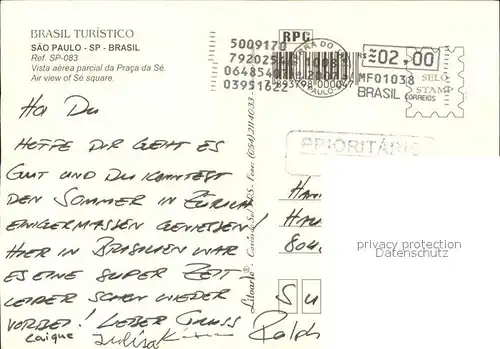 BRASIL TURÍSTICO
SÃO PAULO - SP - BRASIL
Ref. SP-083
Vista aérea parcial da Praça da Sé.
Air view of Sé square.
RPC
5009170
7920254
0648540
03951622
7 893798 000047
2007
PAULO
R$
02,00
MF01038
BRASIL CORREIOS
SELO
STAMP
PRIORITÁRIO
Hoi Du
HOFFE DIR GEHT ES
GUT UND DU KONNTEST
DEN SOMMER IN ZÜRICH
EINIGERMASSEN GENIESSEN!
HIER IN BRASILIEN WAR
ES EINE SUPER ZEIT
LEIDER SCHON WIEDER
VORBEI! LIEBER GRUSS
Caique
Julisa
Ralph
Litoarte
Fone: (054) 211-4033
Ha
Ha
804
S
U
privacy protection
Datenschutz